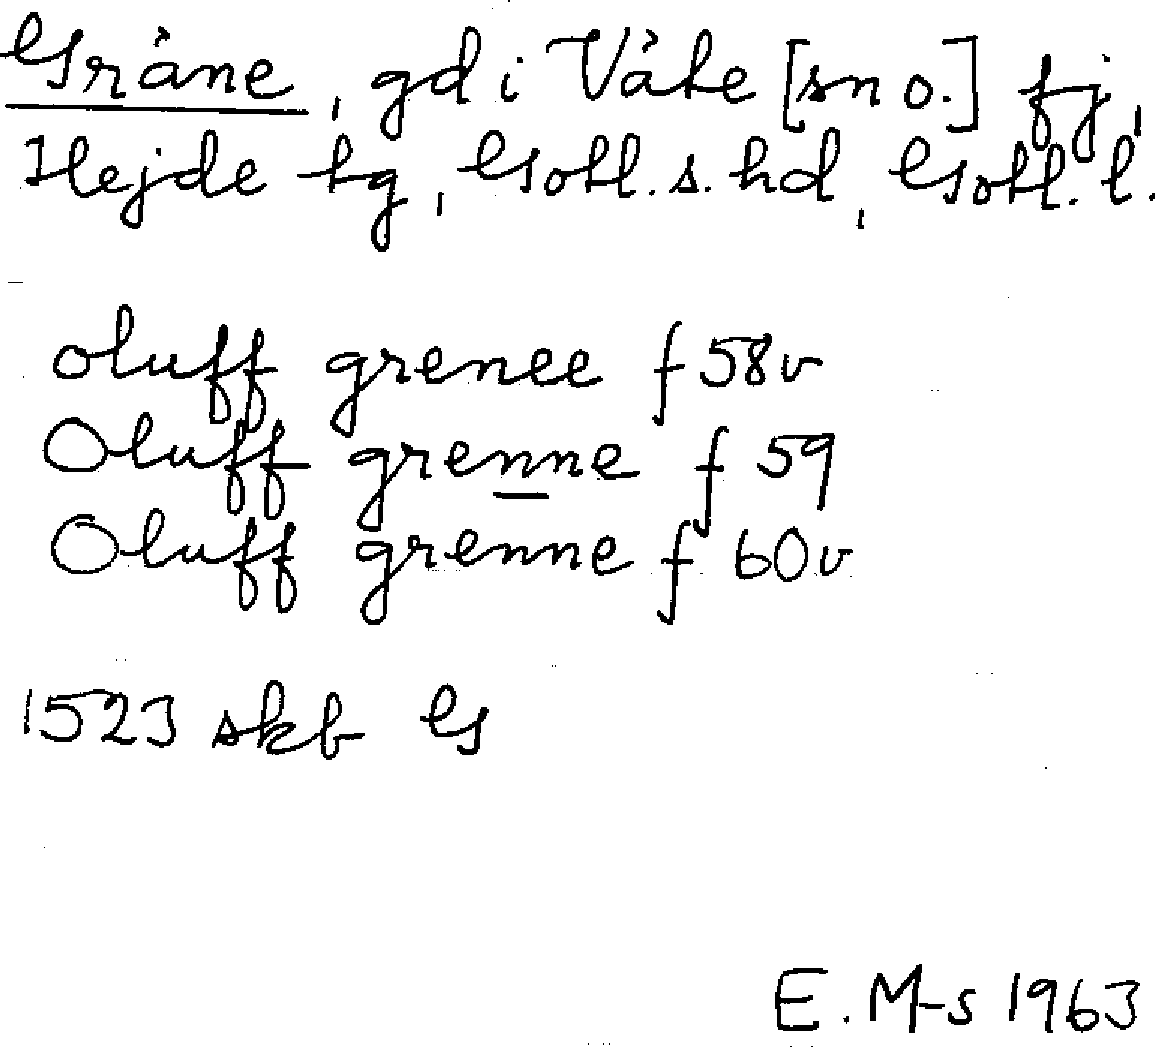 Gråne, gd i Väte [sn o.] fj,
Hejde tg, Gotl. s. hd, Gotl. l.
oluff grenee f 58v
Oluff grenne f 59
Oluff grenne f 60v
1523 skb G
E. M-s 1963